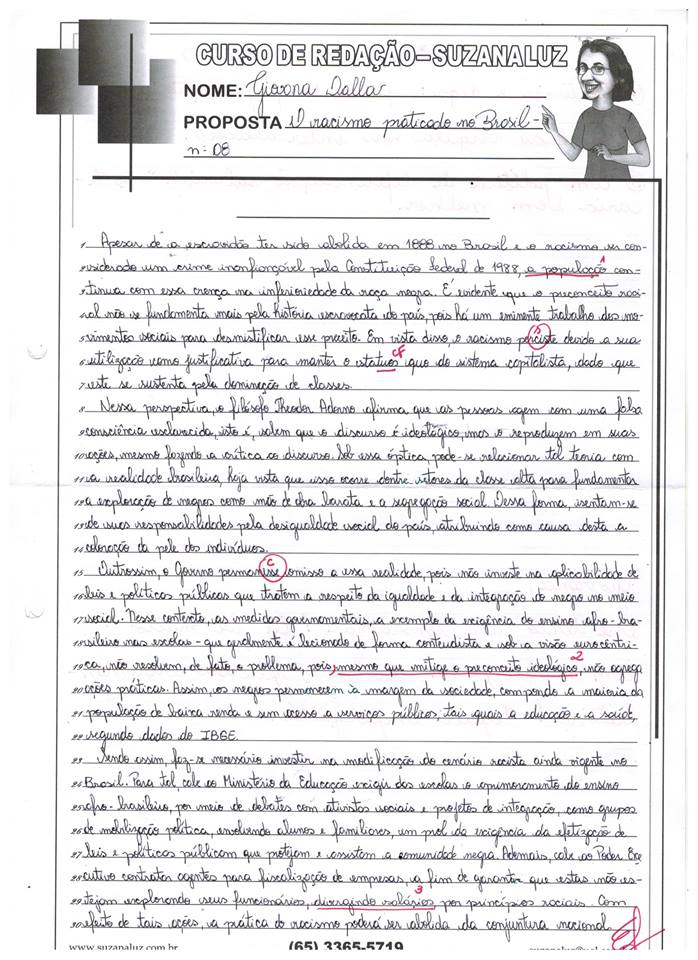 CURSO DE REDAÇÃO – SUZANA LUZ
NOME: Giovona Dalla
PROPOSTA O racismo praticado no Brasil -
n: 08
1 Apesar de a escravidão ter sido abolida em 1888 no Brasil e o racismo ser con-
siderado um crime inafiançável pela Constituição Federal de 1988, a população con- 1
tinua com essa crença na inferioridade da raça negra. É evidente que o preconceito raci-
al não se fundamenta mais pela história escravocata do país, pois há um eminente trabalho dos mo-
vimentos sociais para desmistificar esse preceito. Em vista disso, o racismo perciste devido a sua s
6 utilização como justificativa para manter o statuos quo do sistema capitalista, dado que
7 este se sustenta pela dominação de classes.
8 Nessa perspectiva, o filósofo Theodor Adorno afirma que as pessoas agem com uma falsa
9 consciência esclarecida, isto é, sabem que o discurso é ideológico, mas o reproduzem em suas
10 ações, mesmo fazendo a crítica ao discurso. Sob essa óptica, pode-se relacionar tal teoria com
11 a realidade brasileira, haja vista que isso ocorre dentre setores da classe alta para fundamentar
12 a exploração de negros como mão de obra barata e a segregação social. Dessa forma, isentam-se
13 de suas responsabilidades pela desigualdade social do país, atribuindo como causa desta a
14 coloração da pele dos indivíduos.
15 Outrossim, o Governo permanesse omisso a essa realidade, pois não investe na aplicabilidade de c
16 leis e políticas públicas que tratam a respeito da igualdade e da integração do negro no meio
17 social. Nesse contexto, as medidas governamentais, a exemplo da exigência do ensino afro-bra-
18 sileiro nas escolas - que geralmente é lecionado de forma conteudista e sob a visão eurocêntri-
19 ca, não resolvem, de fato, o problema, pois, mesmo que mitigue o preconceito ideológico, não agrega 2
20 ações práticas. Assim, os negros permanecem à margem da sociedade, compondo a maioria da
21 população de baixa renda e sem acesso a serviços públicos, tais quais a educação e a saúde,
22 segundo dados do IBGE.
23 Sendo assim, faz-se necessário investir na modificação do cenário racista ainda vigente no
24 Brasil. Para tal, cabe ao Ministério da Educação exigir das escolas o aprimoramento do ensino
25 afro-brasileiro, por meio de debates com ativistas sociais e projetos de integração, como grupos
26 de mobilização política, envolvendo alunos e familiares, em prol da exigência da efetização de
27 leis e políticas públicam que protejam e assistam a comunidade negra. Ademais, cabe ao Poder Exe-
28 cutivo contratar agentes para fiscalização de empresas, a fim de garantir que estas não es-
29 tejam explorando seus funcionários, divergindo salários por princípios raciais. Com 3
30 efeito de tais ações, a prática do racismo poderá ser abolida da conjuntura nacional.
www.suzanaluz.com.br (65) 3365-5719